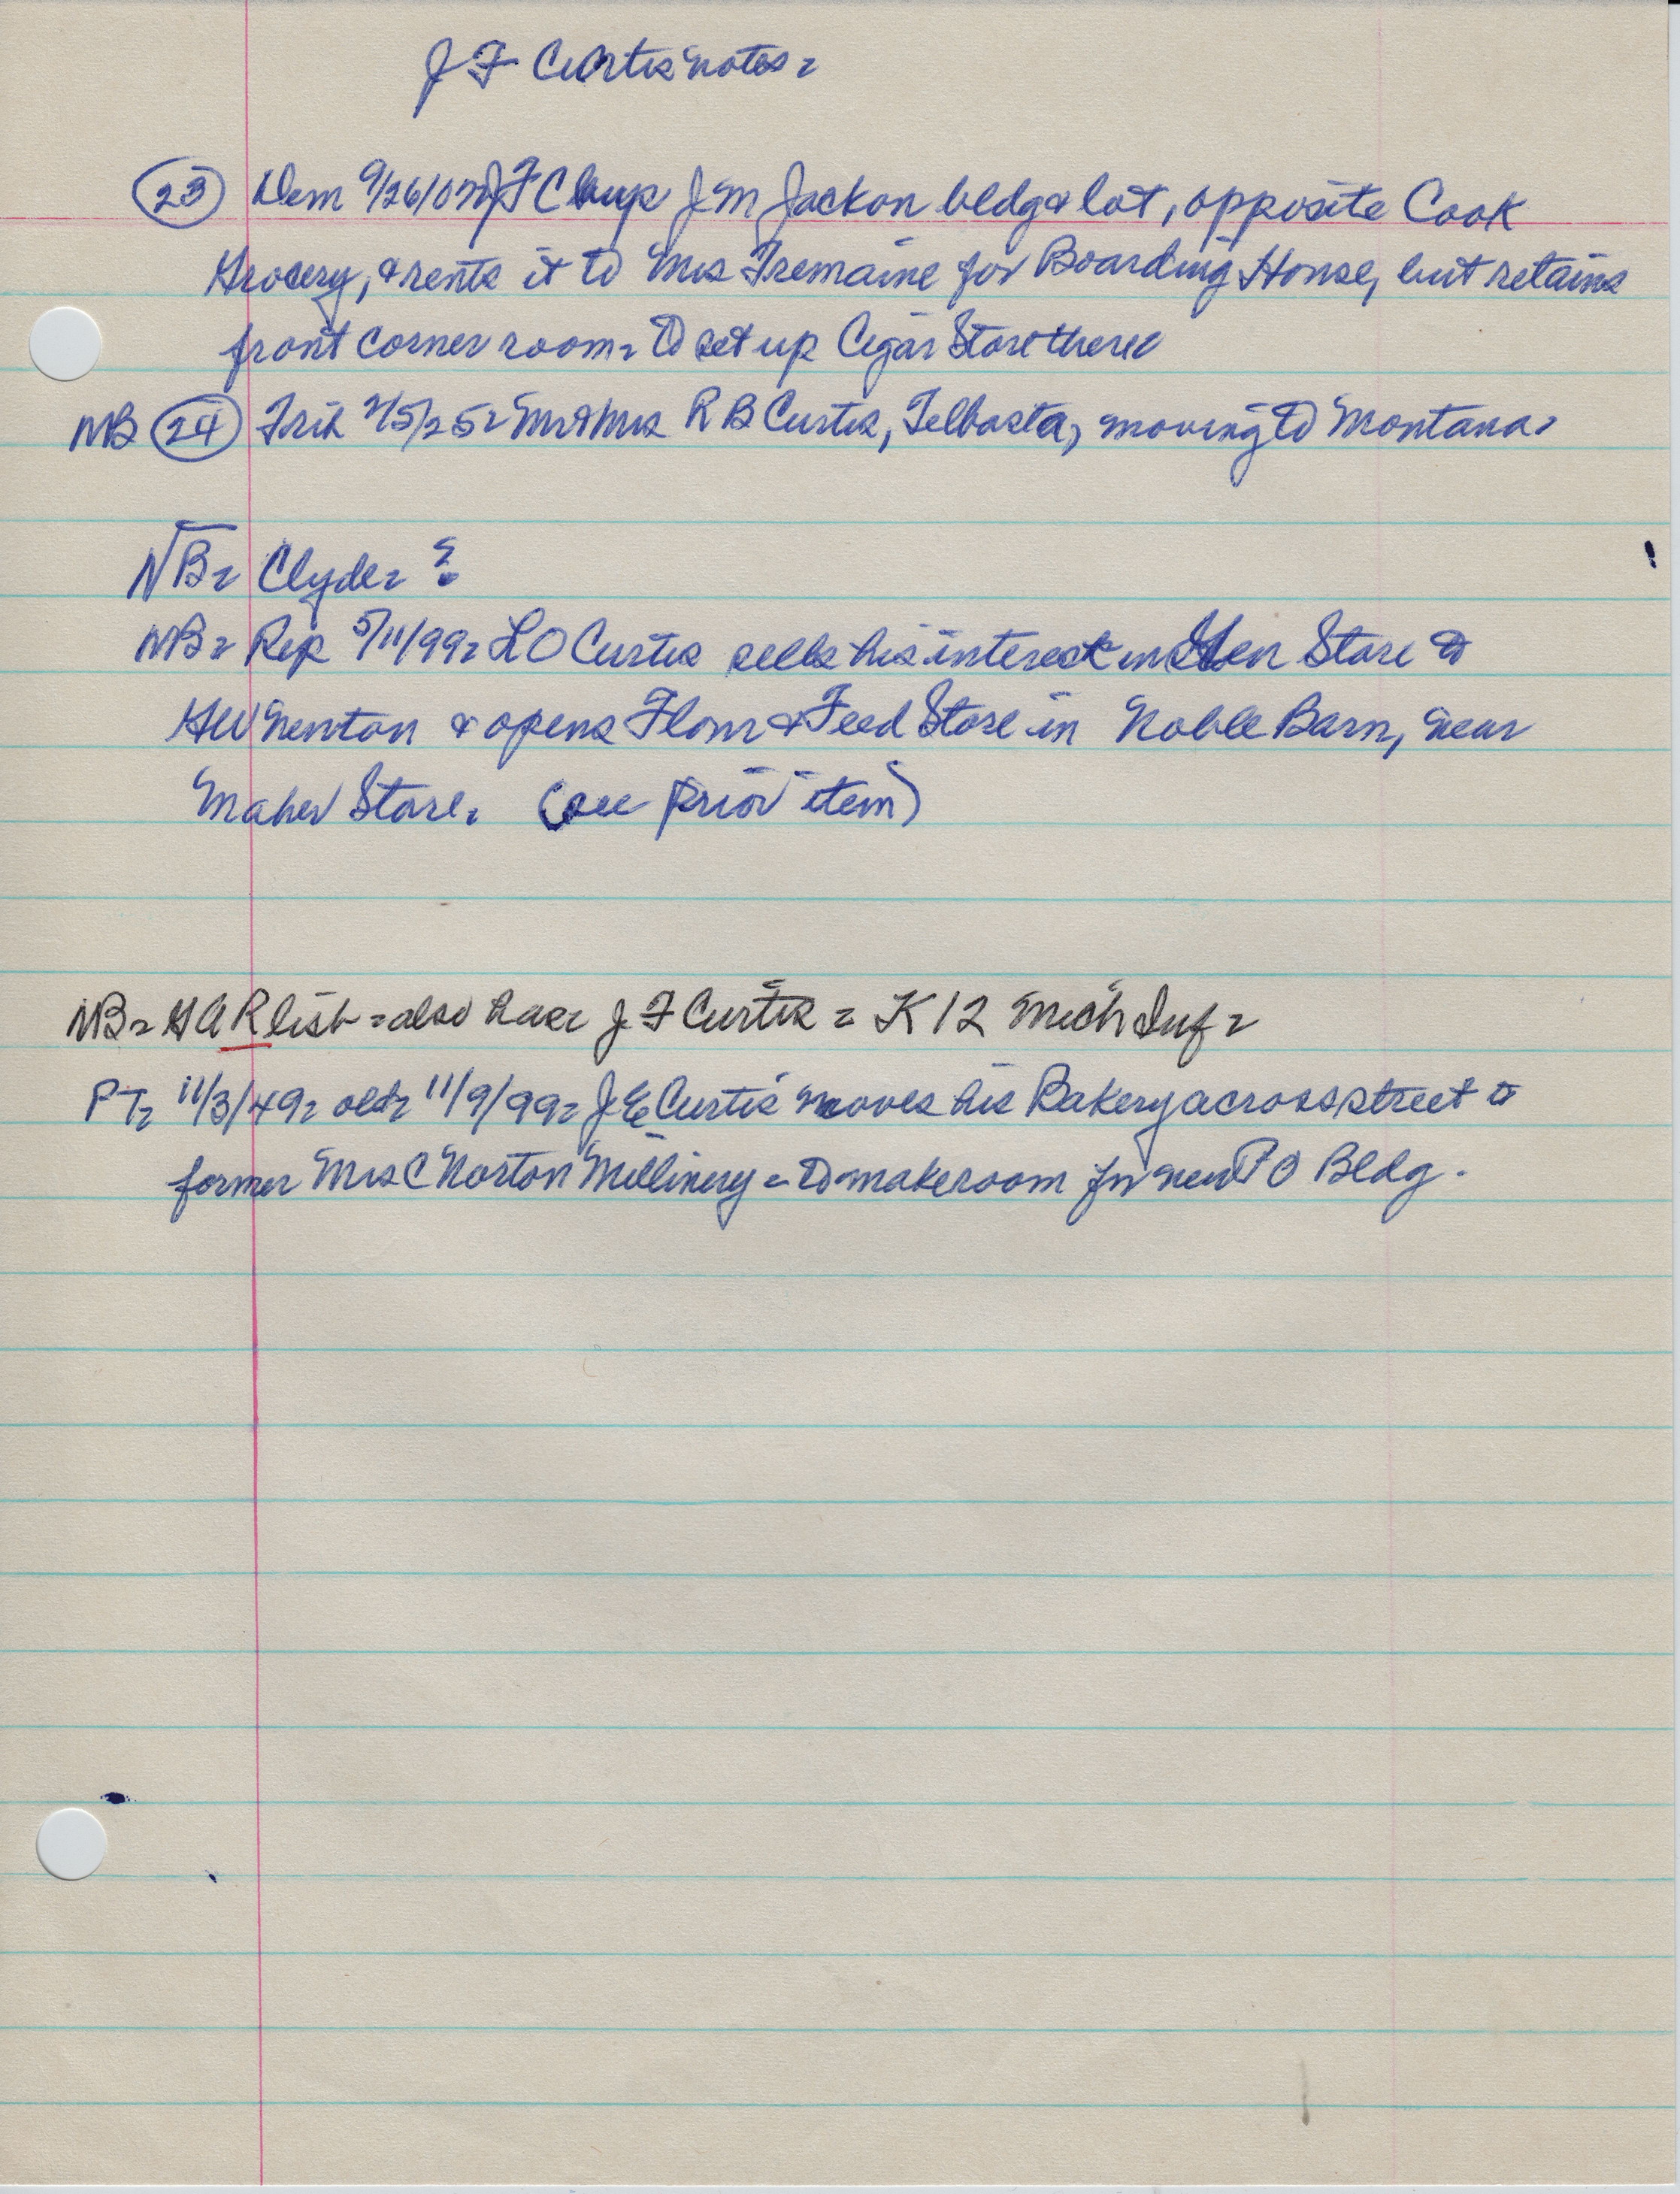 J F Curtis notes =
(23) Dem 9/26/07 = J F C buys J M Jackon bldg & lot, opposite Cook
Grocery, & rents it to Mrs Tremaine for Boarding House, but retains
front corner room = to set up Cigar Store there
NB (24) Trib 2/5/25 = Mr & Mrs R B Curtis, Telbasta, moving to Montana =
NB = Clyde = ?
NB = Rep 5/11/99 = L O Curtis sells his interest in Gen Store to
HW Newton & opens Flour & Feed Store in Noble Barn, near
Maher Store. (see prior item)
NB = GAR list = also has = J F Curtis = K 12 Mich Inf =
PT = 11/3/49 = old = 11/9/99 = J E Curtis moves his Bakery across street to
former Mrs C Norton Millinery = to make room for new PO Bldg.